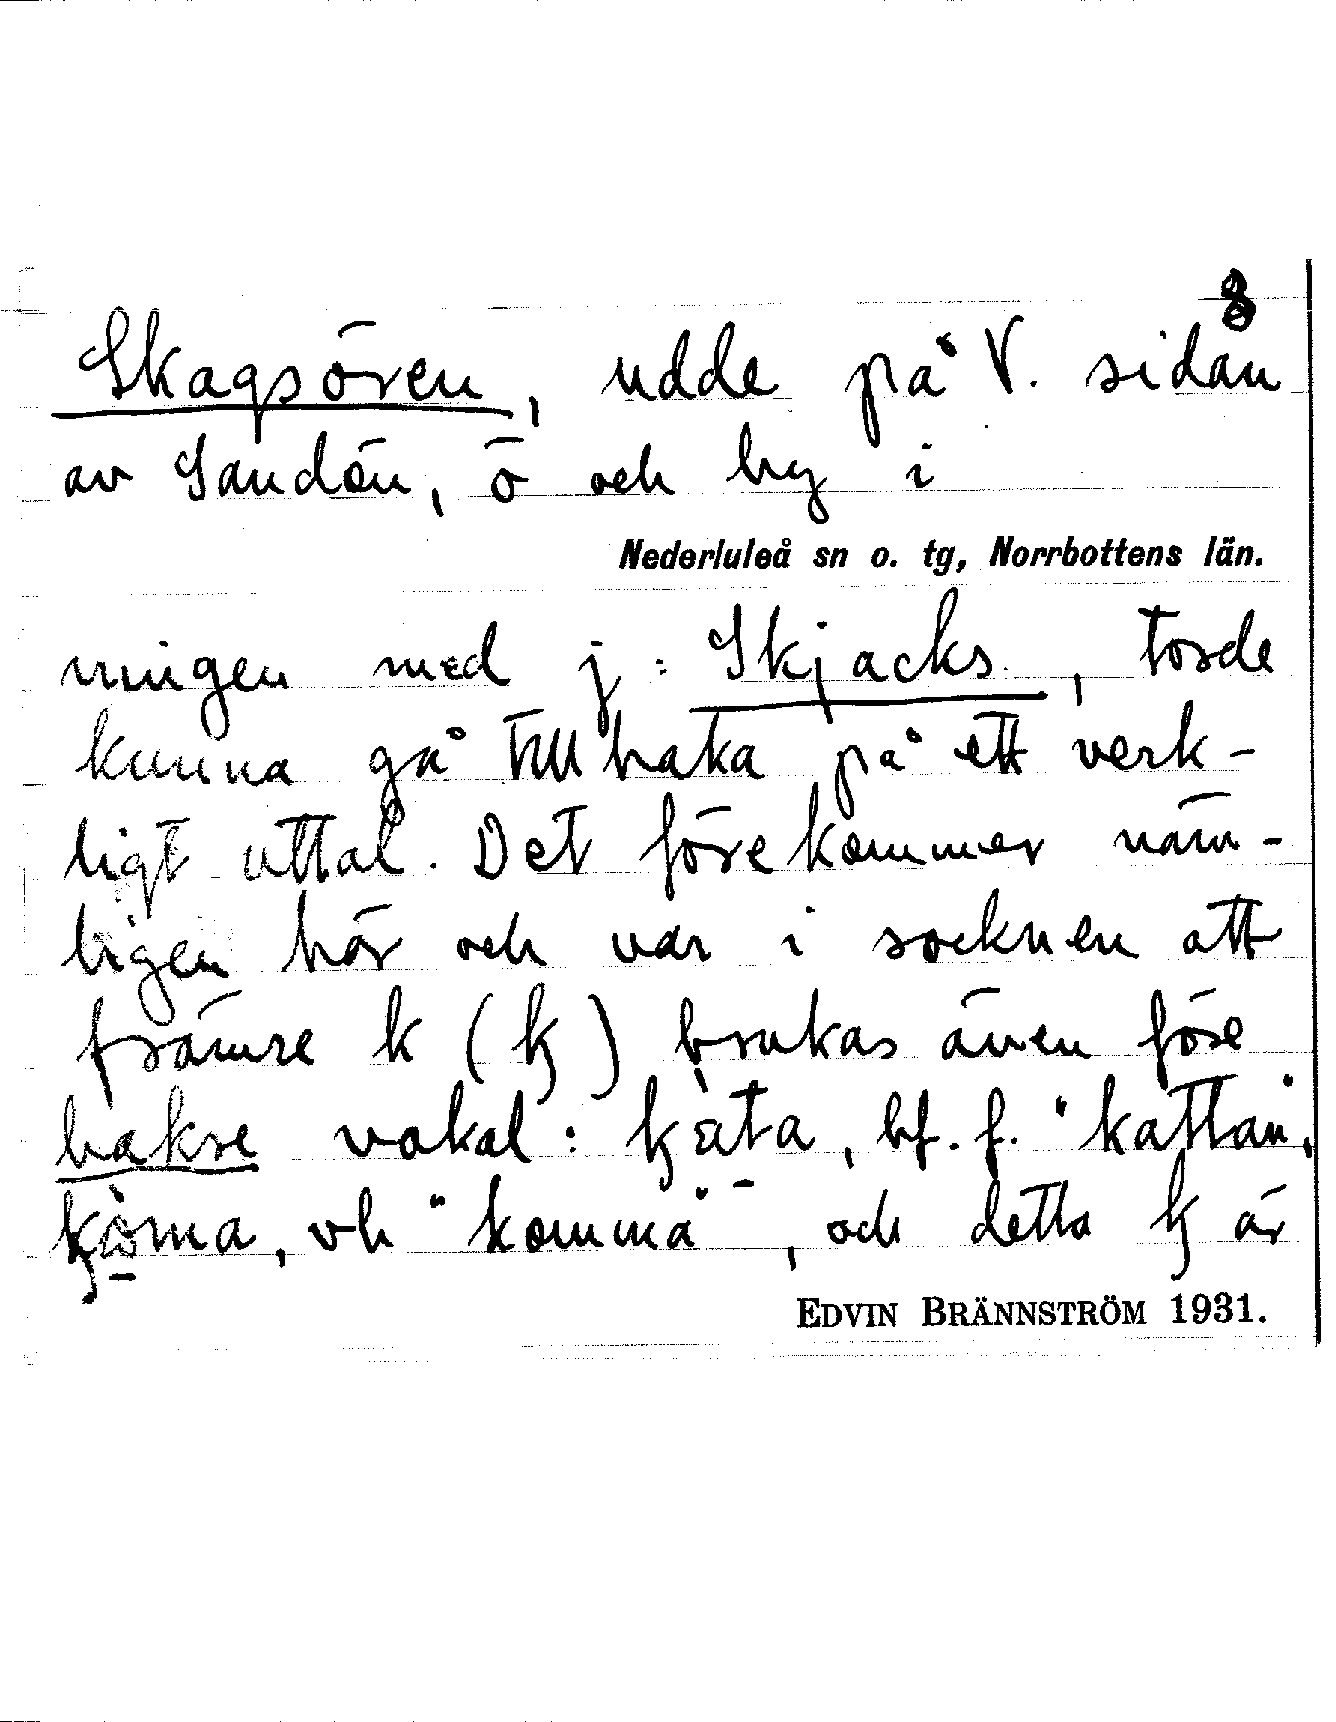 8
Skagsören, udde på V. sidan
av Sandön, ö och by i
Nederluleå sn o. tg, Norrbottens län.
ningen med j: Skjacks, torde
kunna gå tillbaka på ett verk-
ligt uttal. Det förekommer näm-
ligen här och var i socknen att
främre k (ꞣ) brukas även före
bakre vokal: bf. f. "kattan",
vb "komma", och detta ꞣ är
EDVIN BRÄNNSTRÖM 1931.